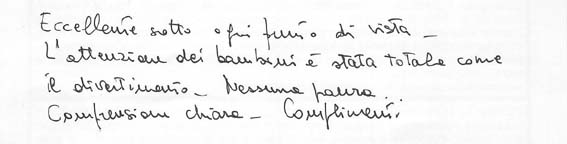 Eccellente sotto ogni punto di vista -
L'attenzione dei bambini è stata totale come
il divertimento - Nessuna paura.
Comprensione chiara - Complimenti.